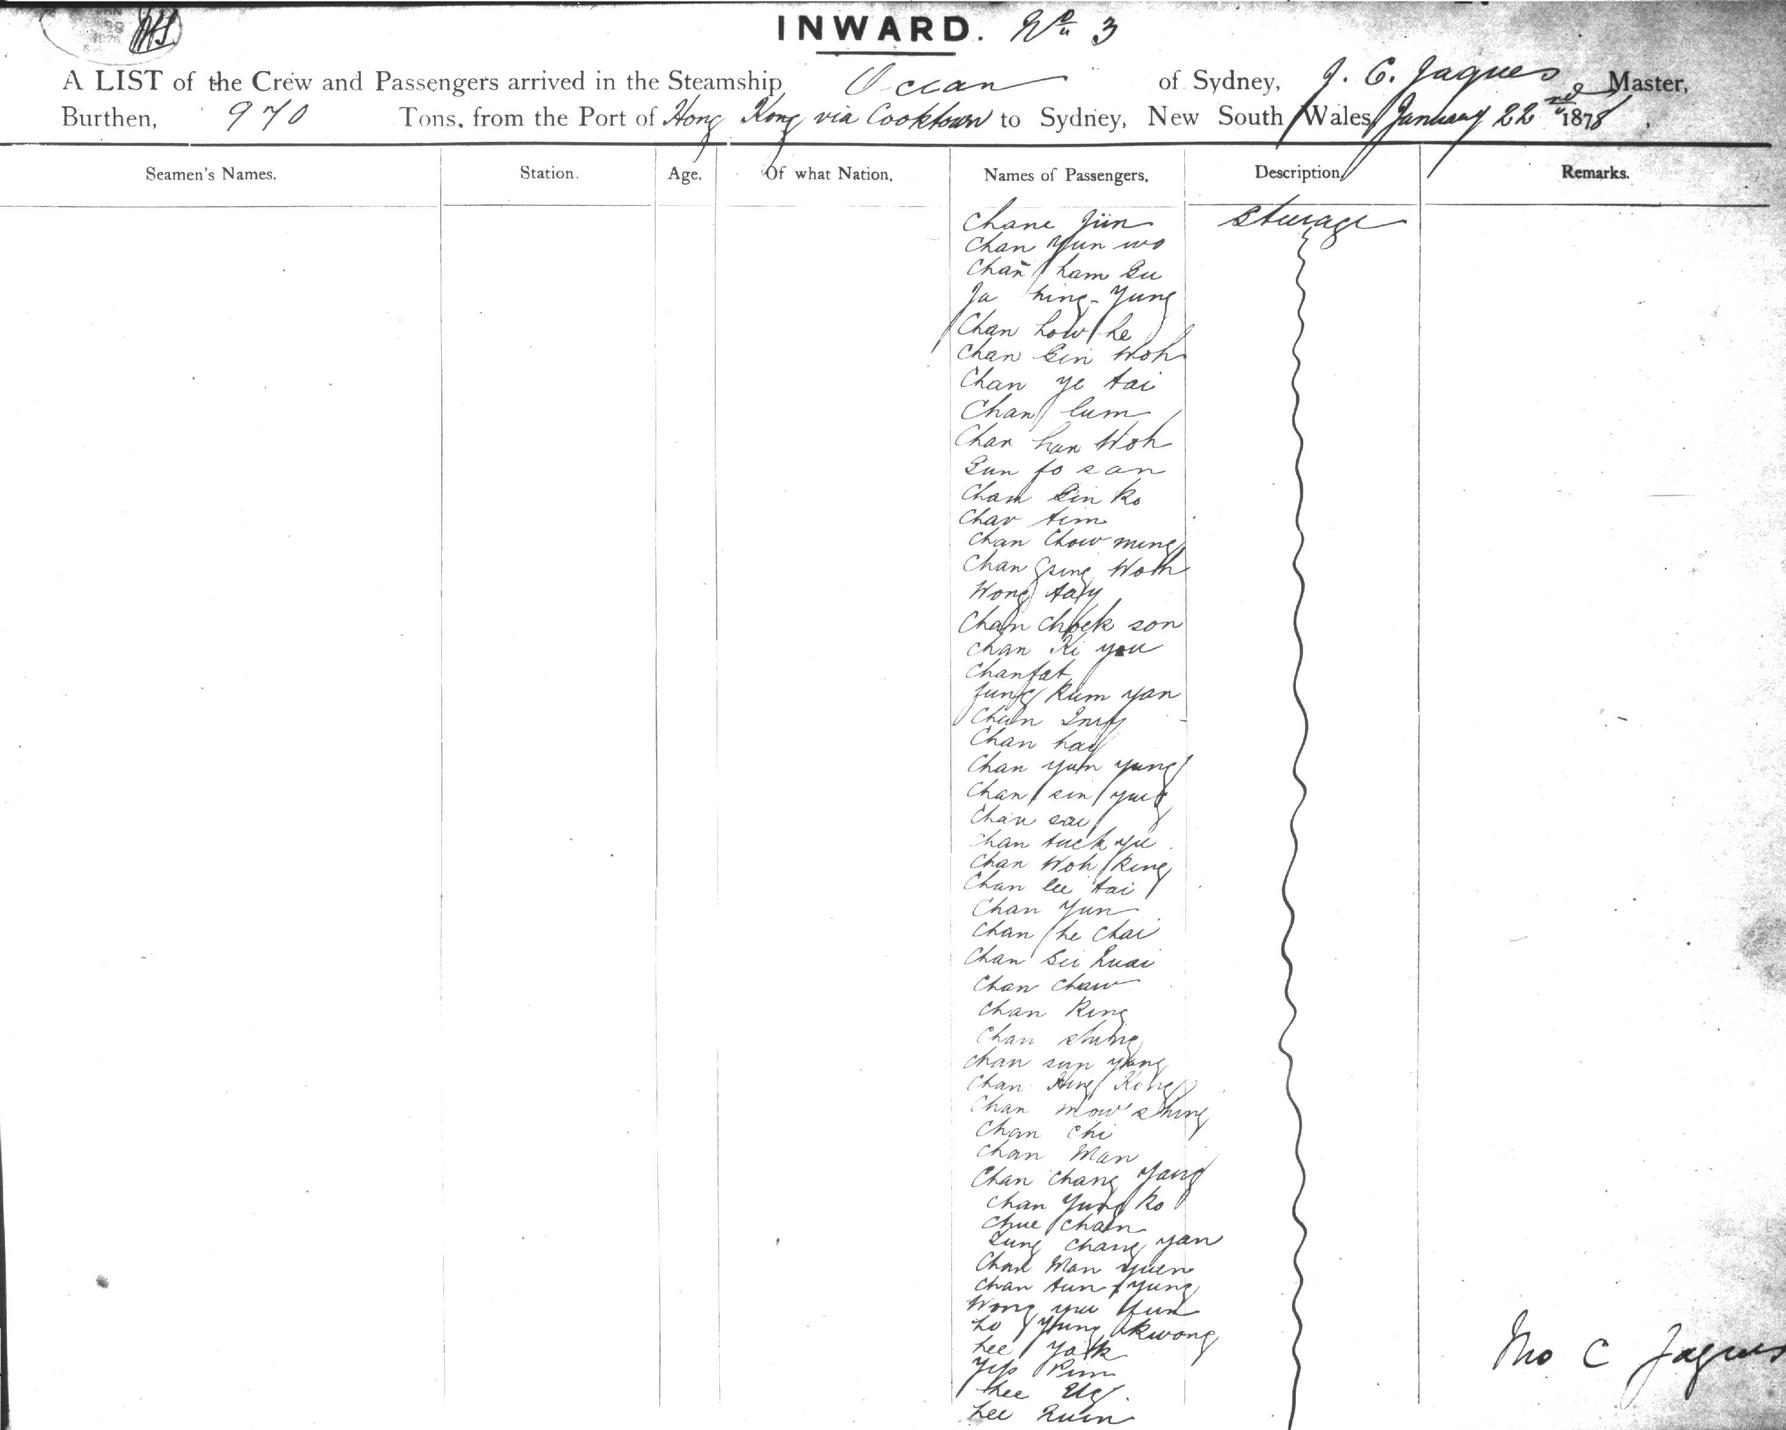 INWARD. No. 3
A LIST of the Crew and Passengers arrived in the Steamship Ocean of Sydney, J. C. Jaques Master,
Burthen, 970 Tons, from the Port of Hong Kong via Cooktown to Sydney, New South Wales, January 22nd 1878
Seamen's Names. Station. Age. Of what Nation. Names of Passengers. Description. Remarks.
Chane Jun Steerage
Chan Yun wo
Chan ham Su
hing Yung
Chan how he
Chan Woh
Chan ye tai
Chan lum
Chan han Woh
fo san
Chan Sin Ko
Chan tim
Chan Chow ming
Chan Woh
Wong tay
Chan Cheek son
Chan Ki you
Chan fat
Kum yan
Chan
Chan hay
Chan yun yung
Chan sin yung
Chan sai
Chan tuck yu
Chan Woh King
Chan lee tai
Chan Yun
Chan he Chai
Chan
Chan Chaw
Chan King
Chan shing
Chan sun yang
Chan Hing Kong
Chan mow shing
Chan Chi
Chan Man
Chan Chang Yang
Chan Yung Ko
Chue Chan
Chang yan
Chan Man Yuen
Chan tun yung
Wong yuu
Lo Yung Kwong
Lee Yark
Yip Kim
Lee
Lee
Jno C Jaques